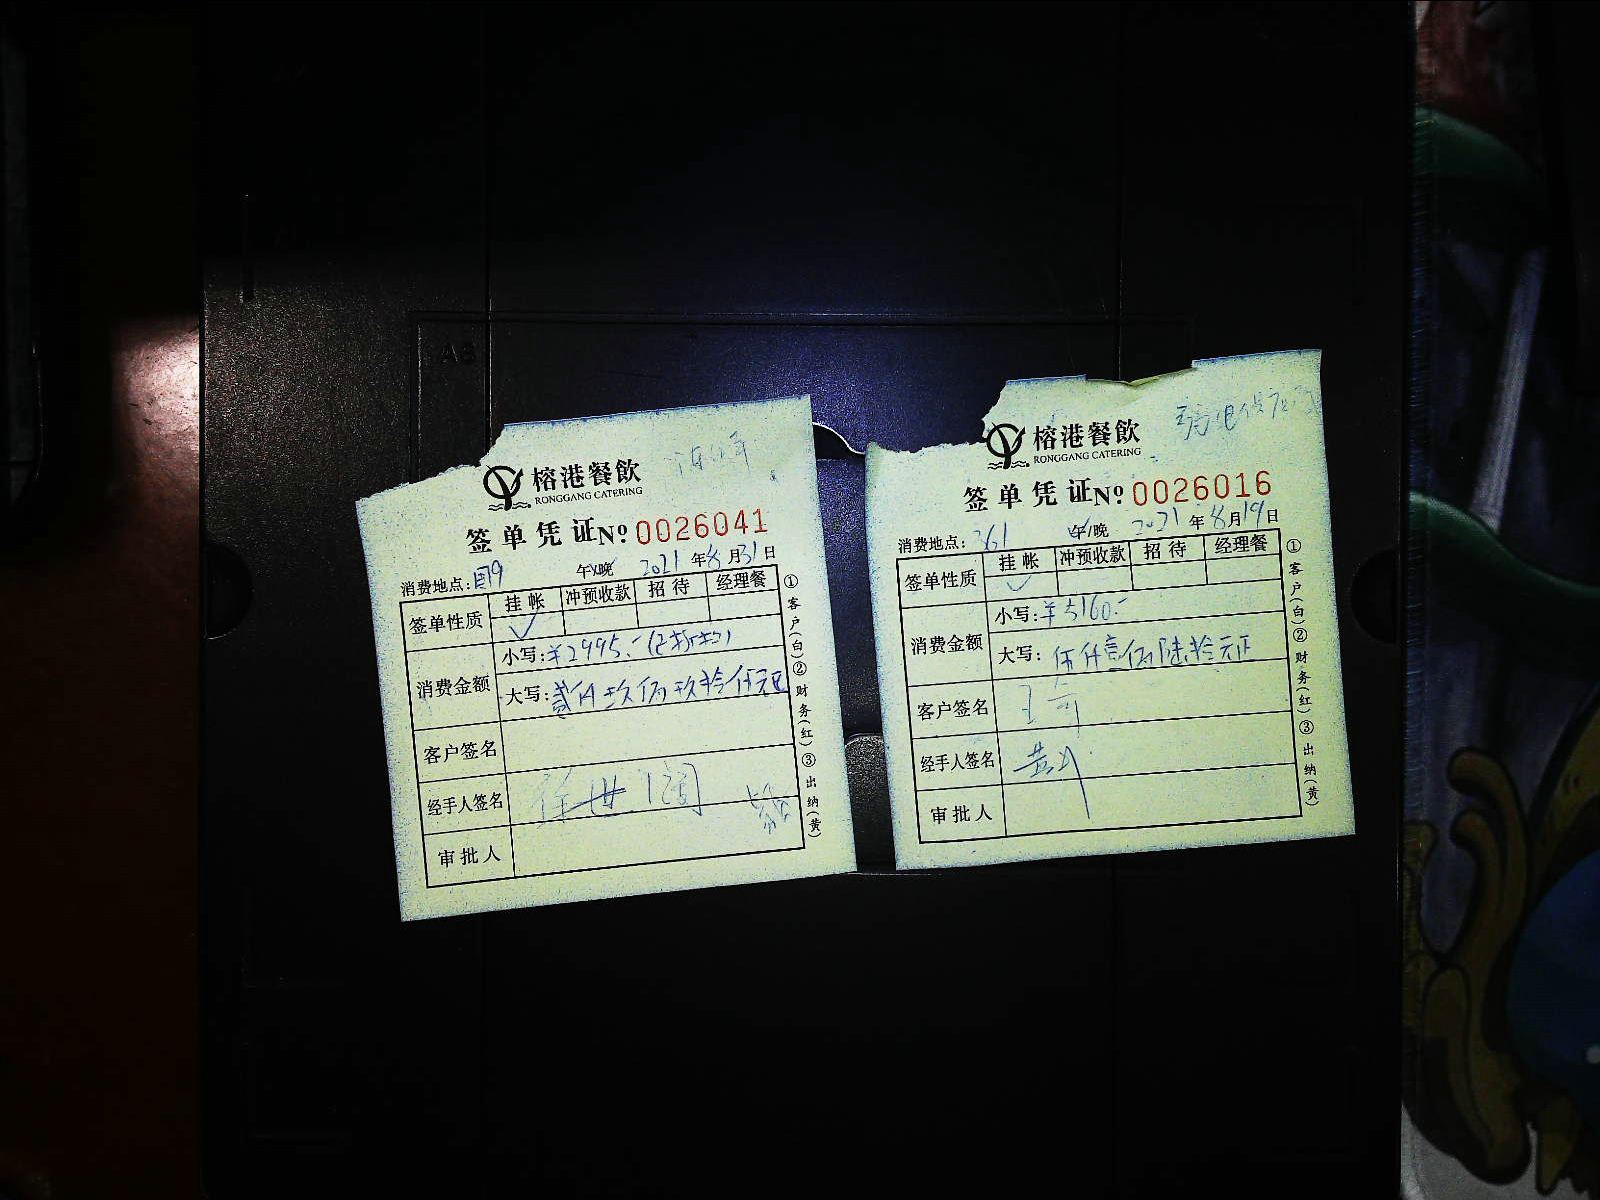 榕港餐飲
RONGGANG CATERING
签单凭证 № 0026041
消费地点: 午/晚 2021 年 8 月 31 日
签单性质 挂帐 冲预收款 招待 经理餐
✓
消费金额 小写: ¥2995.-
大写: 贰仟玖佰玖拾伍元正
客户签名
经手人签名 徐世
审批人
①客户(白)②财务(红)③出纳(黄)
榕港餐飲
RONGGANG CATERING
签单凭证 № 0026016
消费地点: 361 午/晚 2021 年 8 月 19 日
签单性质 挂帐 冲预收款 招待 经理餐
✓
消费金额 小写: ¥5160.-
大写: 伍仟壹佰陆拾元正
客户签名 王奇
经手人签名
审批人
①客户(白)②财务(红)③出纳(黄)
A6